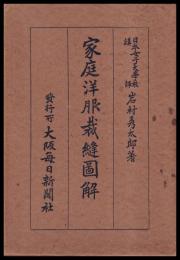 日本女子大學校
講師
岩村彦太郎著
家庭洋服裁縫圖解
發行所 大阪每日新聞社